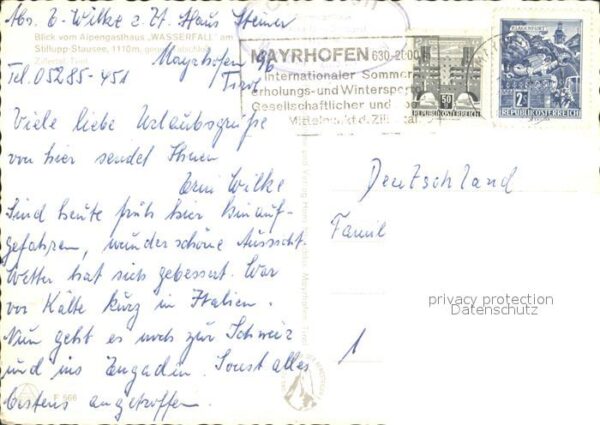 Abs. E. Wilke z. Zt. Haus Steiner
Blick vom Alpengasthaus „WASSERFALL" am
Stillupp-Stausee, 1110m, gegen
Zillertal, Tirol
Mayrhofen
Tel. 05285-451 Tirol
MAYRHOFEN 630-2000
Internationaler Sommer
erholungs- und Winterspor
Gesellschaftlicher und
Mittelpunkt d. Zillertal
50
REPUBLIK ÖSTERREICH
KLAGENFURT
2
REPUBLIK ÖSTERREICH
Viele liebe Urlaubsgrüße
von hier sendet Ihnen
Erni Wilke
Sind heute früh hier hinauf-
gefahren, wunderschöne Aussicht.
Wetter hat sich gebessert. War
vor Kälte kurz in Italien.
Nun geht es noch zur Schweiz
und ins Engadin. Sonst alles
bestens angetroffen.
F 566
Deutschland
Famil
privacy protection
Datenschutz
1